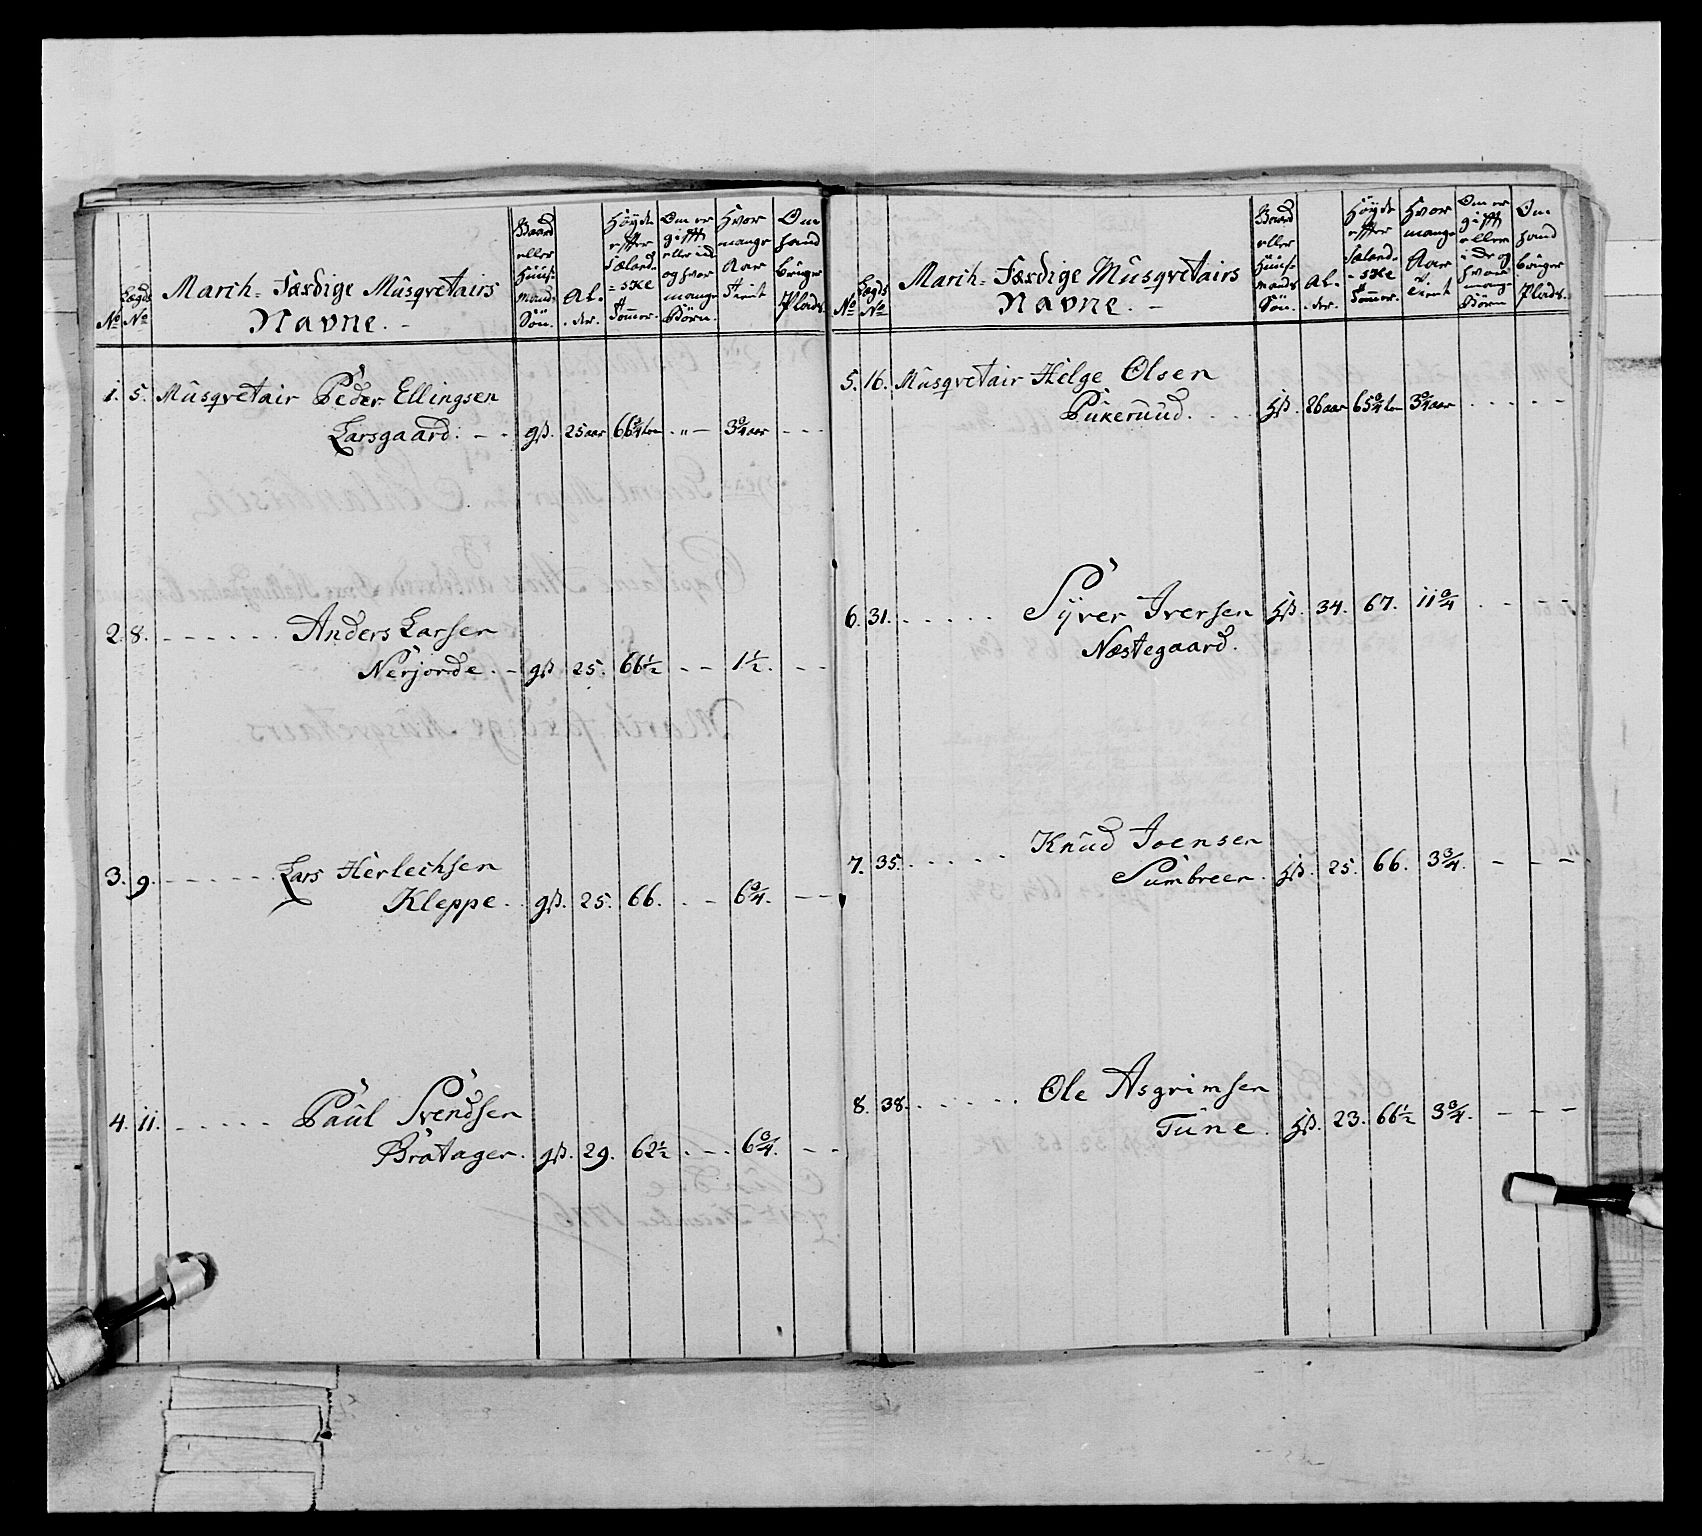 No
Lægds No
March-Færdige Musqvetairs
Navne.
Baand eller Huus-mands Søn.
Al-der.
Høyde efter Sæland-ske Tommer.
Om er gifft eller ei og hvor mange Børn.
Hvor mange Aar Tient
Om hand bruger Plads.
1. 5. Musqvetair Peder Ellingsen
Larsgaard. - - gß. 25 aar 66 3/4 tom . „ - 3 3/4 aar - - -
2. 8. - - - - - - Anders Larsen
Nerjorde. - gß 25. 66 1/2 - - 1 1/2. - -
3. 9. - - - - - Lars Herlechsen
Kleppe. gß. 25. 66. . - 6 3/4. - - -
4. 11. - - - - - Paul Svendsen
Bratager. gß. 29. 62 1/2 . - - . 6 3/4. - -
No
Lægds No
March-Færdige Musqvetairs
Navne. -
Baand eller Huus-mands Søn.
Al-der.
Høyde efter Sæland-ske Tommer.
Hvor mange Aar Tient
Om er gifft eller ei og hvor mange Børn
Om hand bruger Plads.
5. 16. Musqvetair Helge Olsen
Pukeruud. . . . hß. 26 aar 65 3/4 tom 3 3/4 aar . . . . - -
6. 31. . . . . . Syver Iversen hß. 34. 67. 11 3/4 . - - -
Næstegaard.
7. 35. . . . . . Knud Joensen
Sumbreen. hß. 25. 66. 3 3/4. - - -
8. 38. . . . . . Ole Asgrimsen
Tune. hß. 23. 66 1/2 3 3/4. - - -